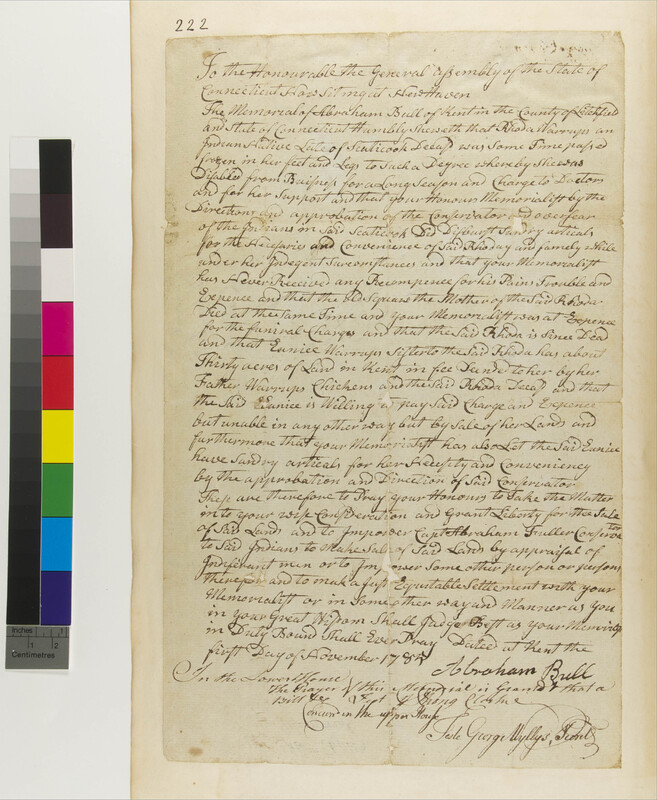 222
To the Honourable the General Assembly of the State of
Connecticut Now Siting at New Haven
The Memorial of Abraham Bull of Kent in the County of Litchfield
and State of Connecticut Humbly Sheweth that Rhoda Warrups an
Indian Native Late of Scaticook Deceas<sup>d</sup> was Some Time passed
frozen in her feet and Legs to Such a Degree whereby She was
Disabled from Buisness for a Long Season and Charge to Doctors
and for her Support and that your Honours Memorialist by the
Direction and approbation of the Conservator and oversear
of the Indians in Said Scaticook Did Disburst Sundry articals
for the Necesarie and Convenience of Said Rhoday and famely while
under her Indegent Sarcomstances and that your Memorialist
has Never Received any Recompence for his Pains Trouble and
Expence and that the old Square the Mother of the Said Rhoda
Died at the Same Time and your Memorialist was at Expence
for the funiral Charges and that the Said Rhoda is Since Dead
and that Eunice Warrups Sister to the Said Rhoda has about
Thirty acres of Land in Kent in fee Sunde to her by her
Father Warrups Chickens and the Said Rhoda Deceas<sup>d</sup> and that
the Said Eunice is Willing to pay Said Charge and Expence
but unable in any other way but by Sale of her Lands and
furthermore that your Memorialist has also Let the Said Eunice
have Sundry articals for her Necesity and Conveniency
by the approbation and Direction of Said Conservator
These are therefore to Pray your Honours to Take the Matter
in to your wise Consideration and Grant Liberty for the Sale
of Said Land and to Impower Capt Abraham Fuller Conservator
to Said Indians to Make Sale of Said Lands by appraisal of
Indifferant men or to Impower Some other person or persons
therefor and to make a just Equitable Settlement with your
Memorialist or in Some other way and Manner as you
in your Great Wisdom Shall Judge Best as your Memorialist
in Duty Bound Shall Ever Pray Dated at Kent the
first Day of November 178
Abraham Bull
In the Lower House
The Prayer of this Memorial is Granted & that a
Bill &c Clerk
Concurd in the upper House
Teste George Wyllys, Secret